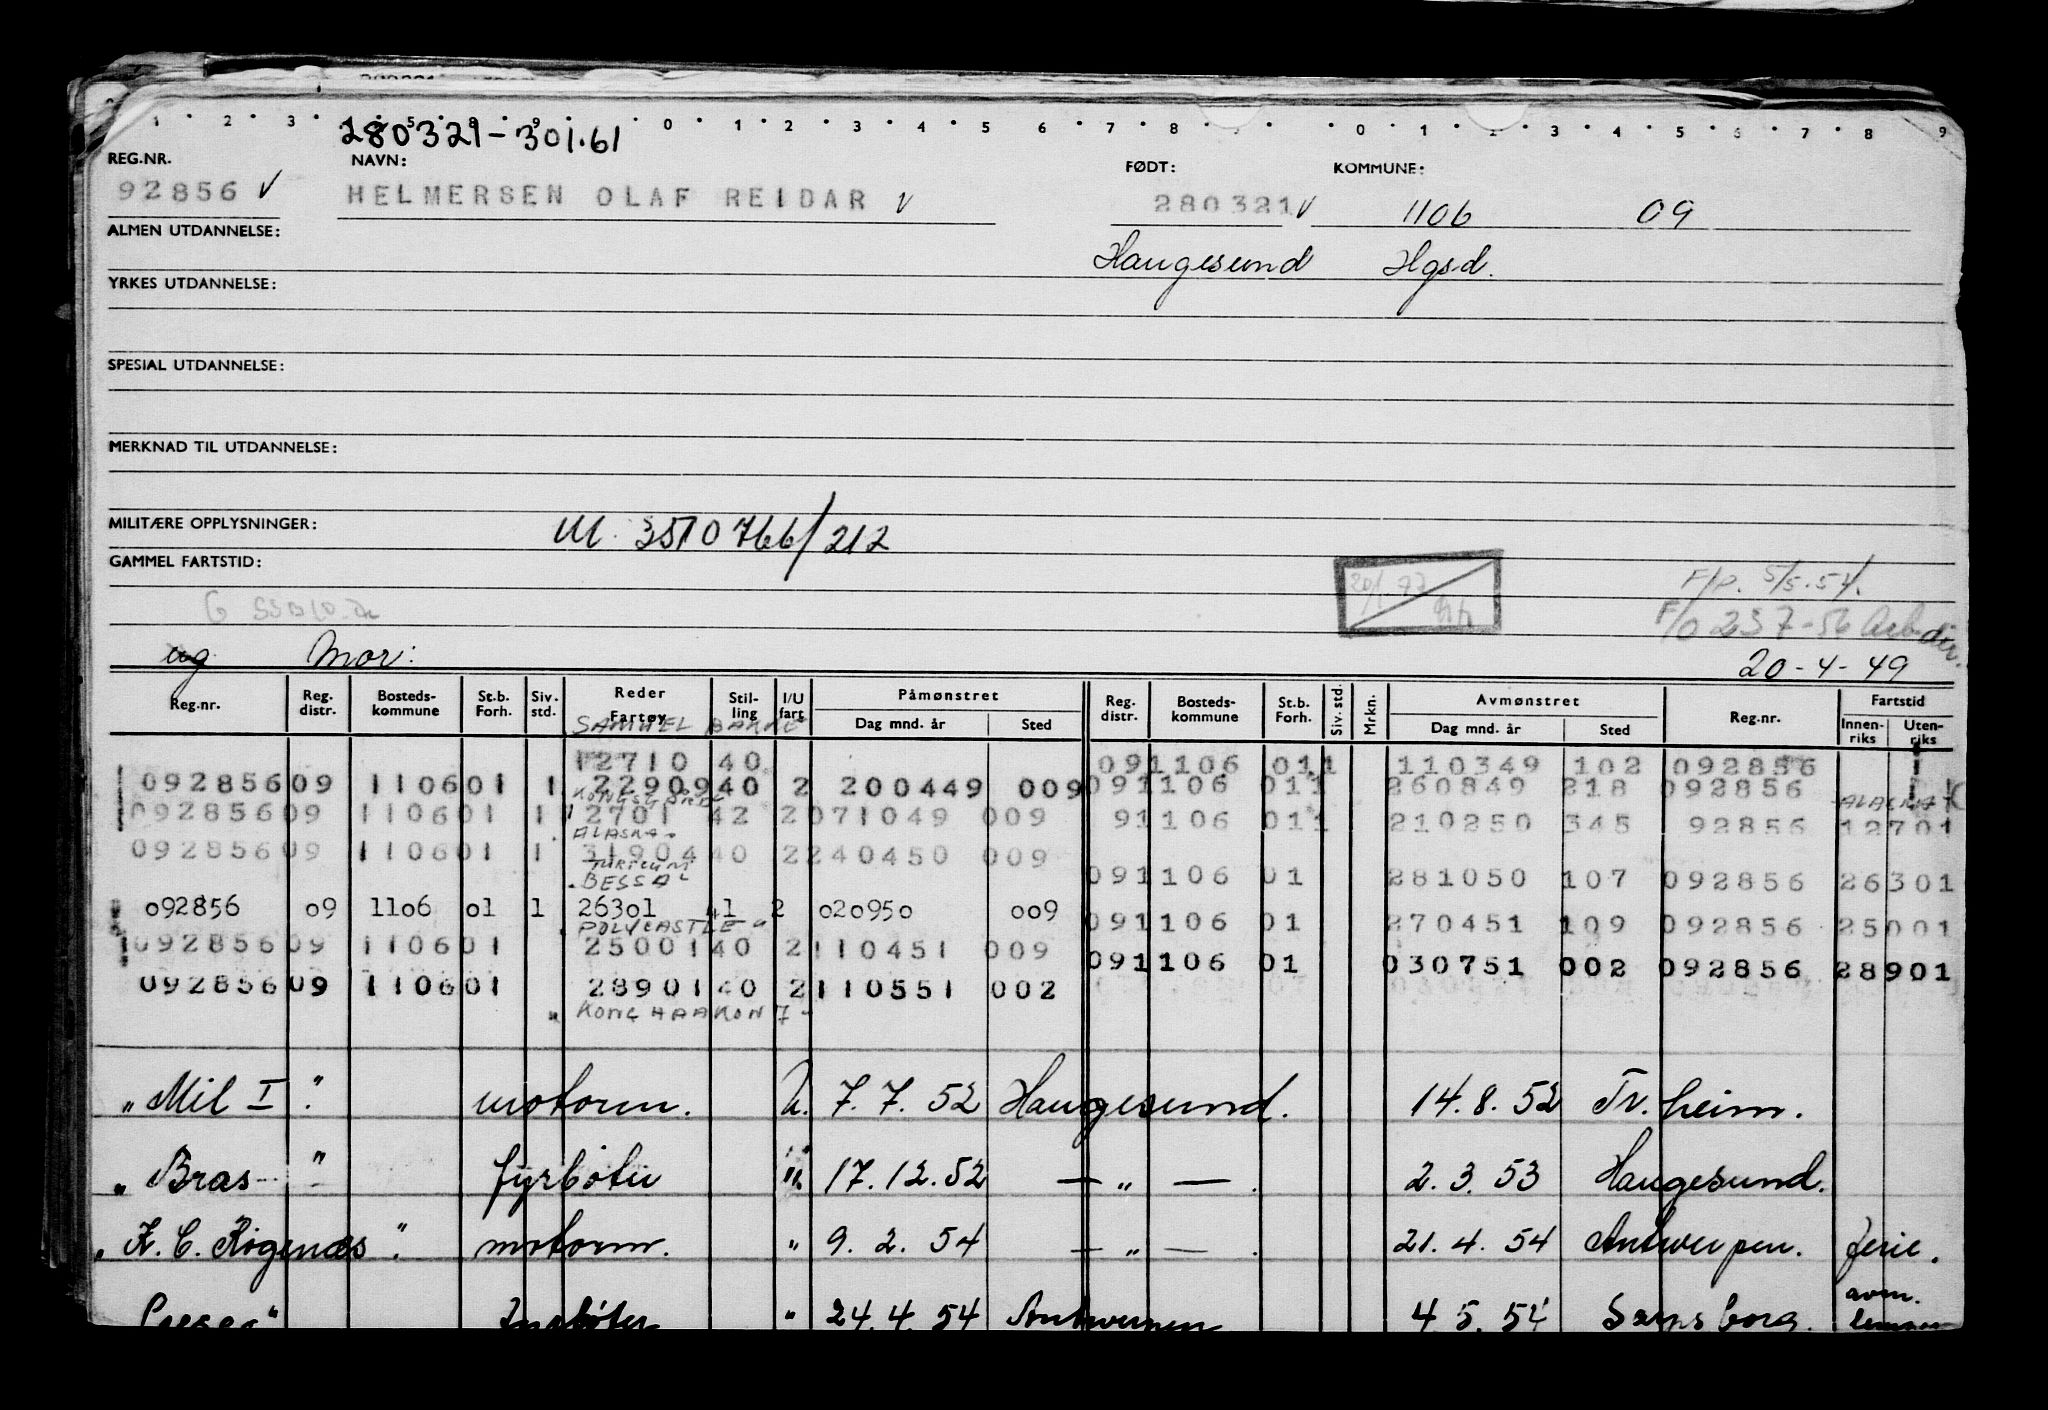 280321-301.61
REG.NR. NAVN: FØDT: KOMMUNE:
92856 HELMERSEN OLAF REIDAR 280321 1106 09
ALMEN UTDANNELSE: Haugesund Hgsd.
YRKES UTDANNELSE:
SPESIAL UTDANNELSE:
MERKNAD TIL UTDANNELSE:
MILITÆRE OPPLYSNINGER: M. 3510766/212
GAMMEL FARTSTID:
F/P. 5/5.54.
ug Mor: 20-4-49
Reg.nr. Reg. distr. Bosteds-kommune St.b. Forh. Siv. std. Reder Fartøy Stil-ling I/U fart Påmønstret Dag mnd. år Sted Reg. distr. Bosteds-kommune St.b. Forh. Siv. std. Mrkn. Avmønstret Dag mnd. år Sted Reg.nr. Fartstid Innen-riks Uten-riks
SAMUEL BAKKE
12710 40 091106 011 110349 102 092856
092856 09 1106 01 1 22909 40 2 200449 009 091106 011 260849 218 092856
KONGSGAARD ALASKA
092856 09 1106 01 1 2701 42 2 071049 009 91106 011 210250 345 92856 12701
ALASKA
092856 09 1106 01 1 31904 40 2 240450 009
TURICUM
BESSA 091106 01 281050 107 092856 26301
092856 09 1106 01 1 26301 41 2 020950 009
POLYCASTLE 091106 01 270451 109 092856 25001
092856 09 1106 01 25001 40 2 110451 009
091106 01 030751 002 092856 28901
092856 09 1106 01 28901 40 2 110551 002
KONG HAAKON 7
"Mil I" motorm. U. 7.7.52 Haugesund. 14.8.52 Tr.heim.
"Bras" fyrbøter " 17.12.52 — " — . 2.3.53 Haugesund.
"K. C. Rogenæs". motorm. " 9.2.54 — " — . 21.4.54 Antwerpen. ferie.
fyrbøter " 24.4.54 Antwerpen 4.5.54 Sarpsborg. avm.